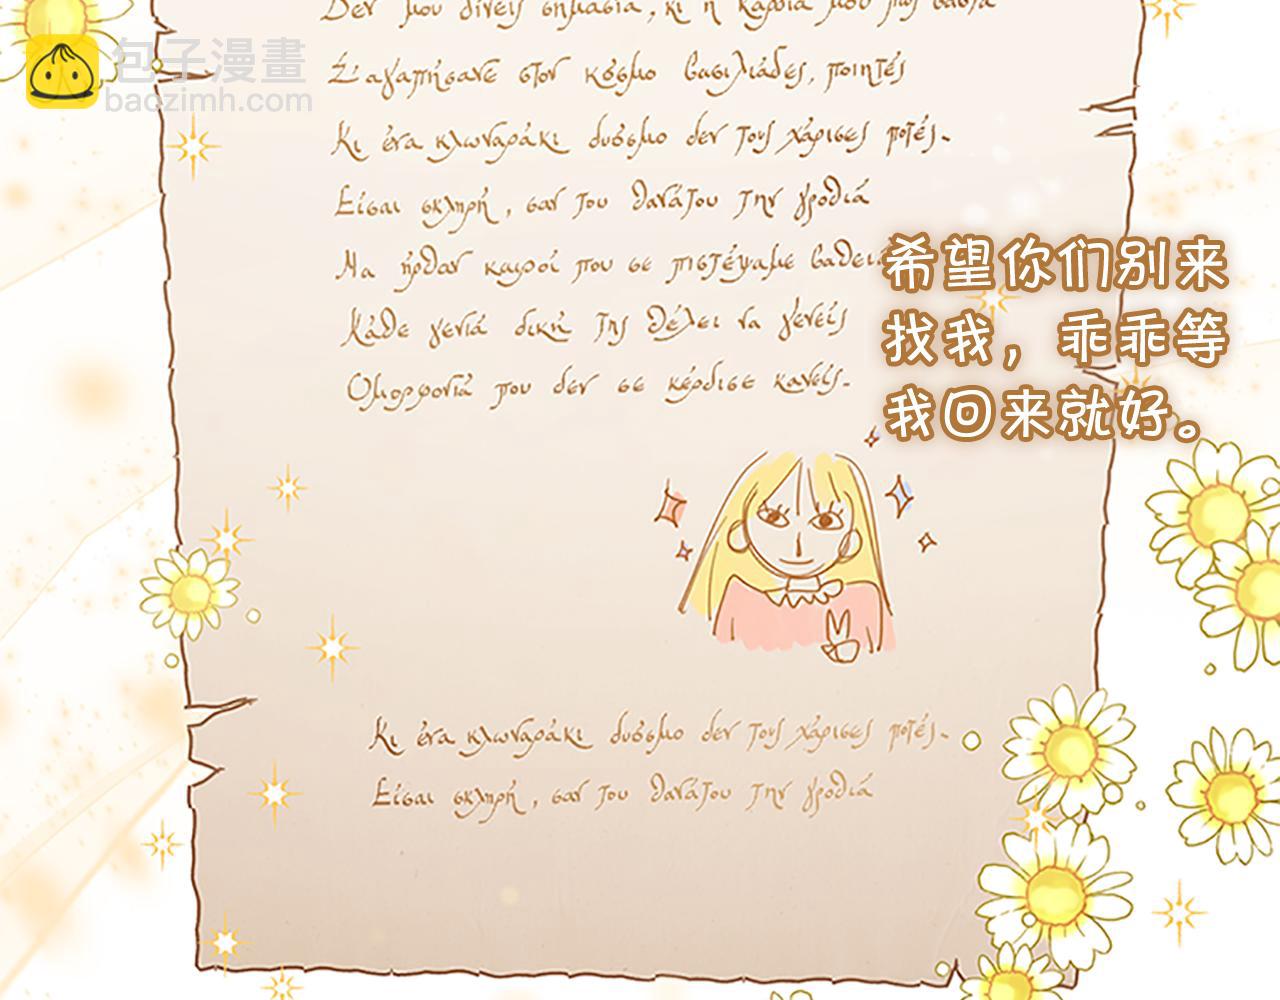 包子漫畫
baozimh.com
Δεν μου δίνεις σημασία, κι η καρδιά μου πώς βαστά
Σ' αγαπήσανε στον κόσμο βασιλιάδες, ποιητές
Κι ένα κλωναράκι δυόσμο δεν τους χάρισες ποτές.
Είσαι σκληρή, σαν του θανάτου την γροθιά
Μα ήρθαν καιροί που σε πιστέψαμε βαθειά
Κάθε γενιά δική της θέλει να γενείς
Ομορφονιά που δεν σε κέρδισε κανείς.
希望你们别来
找我，乖乖等
我回来就好。
Κι ένα κλωναράκι δυόσμο δεν τους χάρισες ποτές.
Είσαι σκληρή, σαν του θανάτου την γροθιά